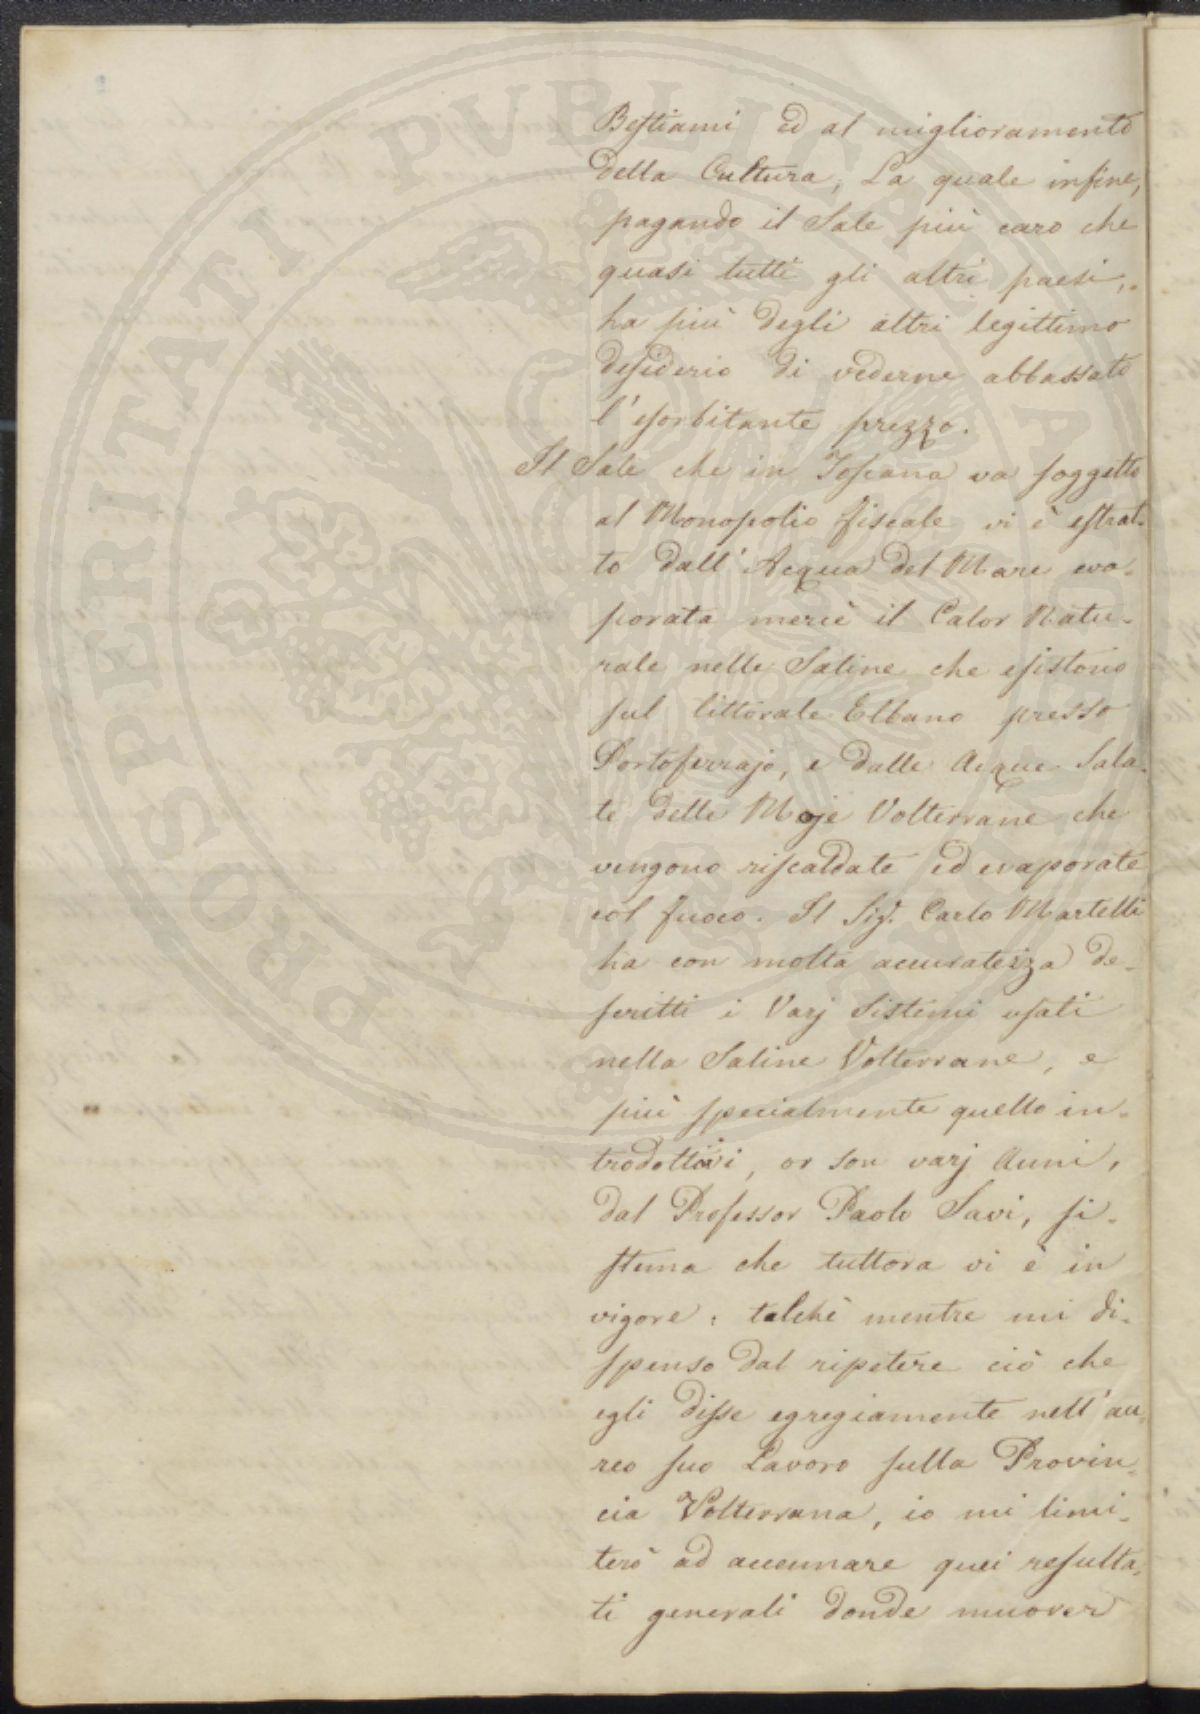 Bestiami ed al miglioramento
della Cultura; La quale infine,
pagando il Sale più caro che
quasi tutti gli altri paesi,
ha più degli altri legittimo
desiderio di vederne abbassato
l'esorbitante prezzo.
Il Sale che in Toscana va soggetto
al Monopolio fiscale vi è estrat-
to dall'Acqua del Mare eva-
porata mercè il Calor Natu-
rale nelle Saline che esistono
sul littorale Elbano presso
Portoferrajo, e dalle Acque Sala-
te delle Moje Volterrane che
vengono riscaldate ed evaporate
col fuoco. Il Sig. Carlo Martelli
ha con molta accuratezza de-
scritti i Varj Sistemi usati
nella Saline Volterrane, e
più specialmente quello in-
trodottovi, or son varj Anni,
dal Professor Paolo Savi, si-
stema che tuttora vi è in
vigore; talchè mentre mi di-
spenso dal ripetere ciò che
egli disse egregiamente nell'au-
reo suo Lavoro sulla Provin-
cia Volterrana, io mi limi-
terò ad accennare quei resulta-
ti generali donde muover
PROSPERITATI PUBLICAE AUGENDAE